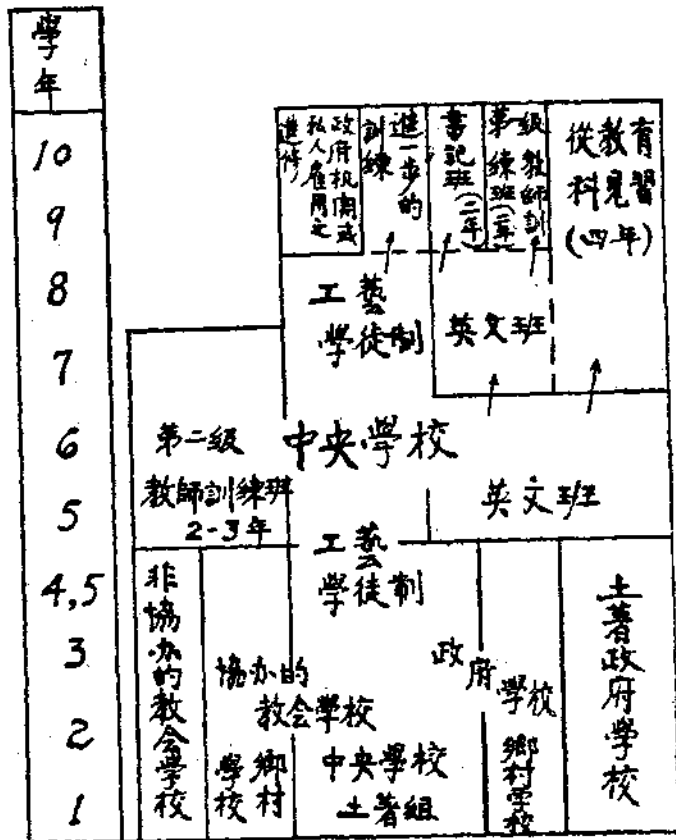 學年
10
9
8
7
6
5
4,5
3
2
1
政府机関或
私人雇用之
進修
進一步的
訓練
書記班(二年)
第一級教師訓
練班(二年)
從教育
科見習
(四年)
工藝
學徒制
英文班
第二級
教師訓練班
2-3年
中央學校
英文班
工藝
學徒制
非協办的教会學校
協办的
教会學校
鄉村
學校
中央學校
土著組
政府
學校
鄉村学校
土著政府學校